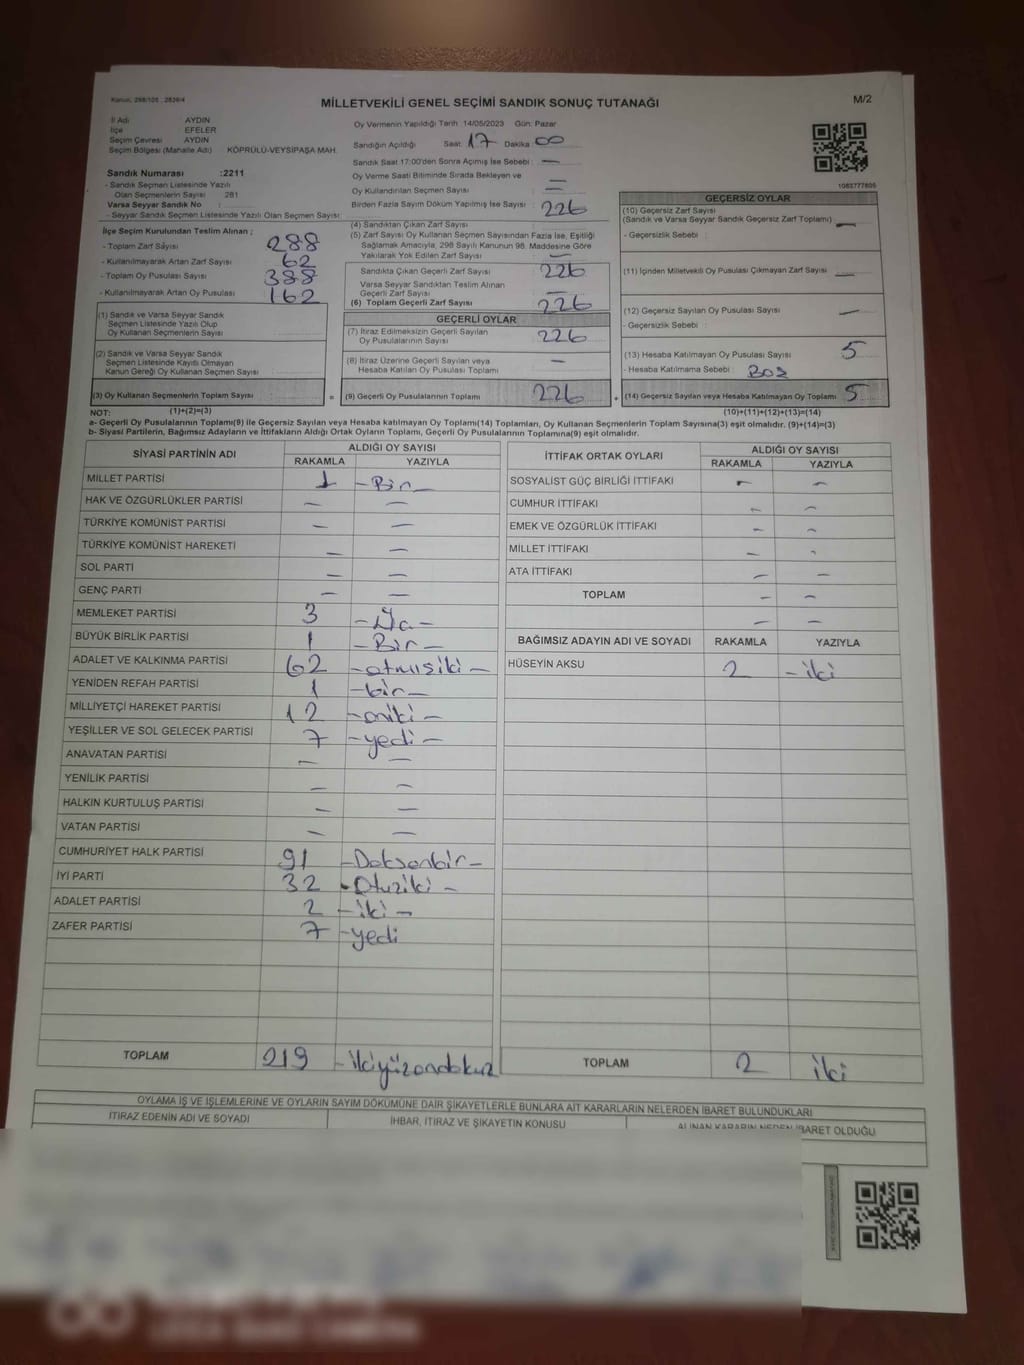 Kanun: 298/105 , 2839/4
MİLLETVEKİLİ GENEL SEÇİMİ SANDIK SONUÇ TUTANAĞI
M/2
İl Adı AYDIN
İlçe EFELER
Seçim Çevresi AYDIN
Seçim Bölgesi (Mahalle Adı) KÖPRÜLÜ-VEYSİPAŞA MAH.
Sandık Numarası :2211
- Sandık Seçmen Listesinde Yazılı
Olan Seçmenlerin Sayısı 281
Varsa Seyyar Sandık No :
- Seyyar Sandık Seçmen Listesinde Yazılı Olan Seçmen Sayısı:
İlçe Seçim Kurulundan Teslim Alınan ;
- Toplam Zarf Sayısı 288
- Kullanılmayarak Artan Zarf Sayısı 62
- Toplam Oy Pusulası Sayısı 388
- Kullanılmayarak Artan Oy Pusulası 162
(1) Sandık ve Varsa Seyyar Sandık
Seçmen Listesinde Yazılı Olup
Oy Kullanan Seçmenlerin Sayısı
(2) Sandık ve Varsa Seyyar Sandık
Seçmen Listesinde Kayıtlı Olmayan
Kanun Gereği Oy Kullanan Seçmen Sayısı
(3) Oy Kullanan Seçmenlerin Toplam Sayısı
Oy Vermenin Yapıldığı Tarih 14/05/2023 Gün: Pazar
Sandığın Açıldığı Saat: 17 Dakika: 00
Sandık Saat 17:00'den Sonra Açılmış İse Sebebi : —
Oy Verme Saati Bitiminde Sırada Bekleyen ve —
Oy Kullandırılan Seçmen Sayısı —
Birden Fazla Sayım Döküm Yapılmış İse Sayısı : 226
(4) Sandıktan Çıkan Zarf Sayısı
(5) Zarf Sayısı Oy Kullanan Seçmen Sayısından Fazla İse, Eşitliği
Sağlamak Amacıyla, 298 Sayılı Kanunun 98. Maddesine Göre
Yakılarak Yok Edilen Zarf Sayısı —
Sandıkta Çıkan Geçerli Zarf Sayısı 226
Varsa Seyyar Sandıktan Teslim Alınan
Geçerli Zarf Sayısı —
(6) Toplam Geçerli Zarf Sayısı 226
GEÇERLİ OYLAR
(7) İtiraz Edilmeksizin Geçerli Sayılan
Oy Pusulalarının Sayısı 226
(8) İtiraz Üzerine Geçerli Sayılan veya
Hesaba Katılan Oy Pusulası Toplamı —
= (9) Geçerli Oy Pusulalarının Toplamı 226 +
1083777605
GEÇERSİZ OYLAR
(10) Geçersiz Zarf Sayısı
(Sandık ve Varsa Seyyar Sandık Geçersiz Zarf Toplamı) : —
- Geçersizlik Sebebi :
(11) İçinden Milletvekili Oy Pusulası Çıkmayan Zarf Sayısı —
(12) Geçersiz Sayılan Oy Pusulası Sayısı —
- Geçersizlik Sebebi :
(13) Hesaba Katılmayan Oy Pusulası Sayısı 5
- Hesaba Katılmama Sebebi : Boş
(14) Geçersiz Sayılan veya Hesaba Katılmayan Oy Toplamı 5
NOT: (1)+(2)=(3) (10)+(11)+(12)+(13)=(14)
a- Geçerli Oy Pusulalarının Toplamı(9) ile Geçersiz Sayılan veya Hesaba katılmayan Oy Toplamı(14) Toplamları, Oy Kullanan Seçmenlerin Toplam Sayısına(3) eşit olmalıdır. (9)+(14)=(3)
b- Siyasi Partilerin, Bağımsız Adayların ve İttifakların Aldığı Ortak Oyların Toplam, Geçerli Oy Pusulalarının Toplamına(9) eşit olmalıdır.
SİYASİ PARTİNİN ADI ALDIĞI OY SAYISI
RAKAMLA YAZIYLA
MİLLET PARTİSİ 1 - Bir -
HAK VE ÖZGÜRLÜKLER PARTİSİ — —
TÜRKİYE KOMÜNİST PARTİSİ — —
TÜRKİYE KOMÜNİST HAREKETİ — —
SOL PARTİ — —
GENÇ PARTİ — —
MEMLEKET PARTİSİ 3 - Üç -
BÜYÜK BİRLİK PARTİSİ 1 - Bir -
ADALET VE KALKINMA PARTİSİ 62 - atmışiki -
YENİDEN REFAH PARTİSİ 1 - bir -
MİLLİYETÇİ HAREKET PARTİSİ 12 - oniki -
YEŞİLLER VE SOL GELECEK PARTİSİ 7 - yedi -
ANAVATAN PARTİSİ — —
YENİLİK PARTİSİ — —
HALKIN KURTULUŞ PARTİSİ — —
VATAN PARTİSİ — —
CUMHURİYET HALK PARTİSİ 91 - Doksanbir -
İYİ PARTİ 32 - Otuziki -
ADALET PARTİSİ 2 - iki -
ZAFER PARTİSİ 7 - yedi
TOPLAM 219 - ikiyüzondokuz
İTTİFAK ORTAK OYLARI ALDIĞI OY SAYISI
RAKAMLA YAZIYLA
SOSYALİST GÜÇ BİRLİĞİ İTTİFAKI — —
CUMHUR İTTİFAKI — —
EMEK VE ÖZGÜRLÜK İTTİFAKI — —
MİLLET İTTİFAKI — —
ATA İTTİFAKI — —
TOPLAM — —
— —
BAĞIMSIZ ADAYIN ADI VE SOYADI RAKAMLA YAZIYLA
HÜSEYİN AKSU 2 - iki
TOPLAM 2 iki
OYLAMA İŞ VE İŞLEMLERİNE VE OYLARIN SAYIM DÖKÜMÜNE DAİR ŞİKAYETLERLE BUNLARA AİT KARARLARIN NELERDEN İBARET BULUNDUKLARI
İTİRAZ EDENİN ADI VE SOYADI İHBAR, İTİRAZ VE ŞİKAYETİN KONUSU ALINAN KARARIN NEDEN İBARET OLDUĞU